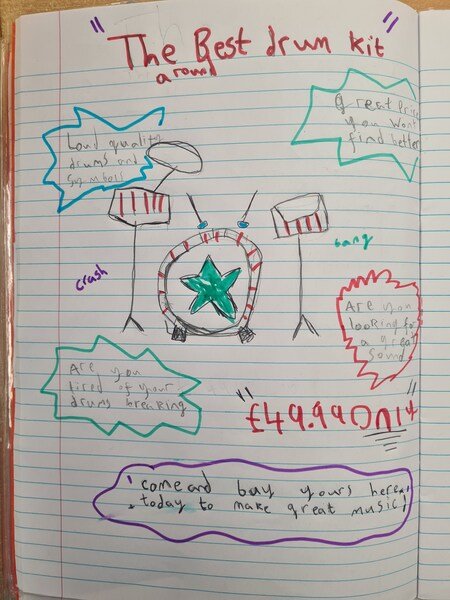 "The Best drum kit"
around
Loud quality
drums and
symbols
great Price
you wont
find better
bang
crash
Are you
looking for
a great
sound
Are you
tired of your
drums breaking
"£49.99 Only"
come and buy yours here
today to make great music!